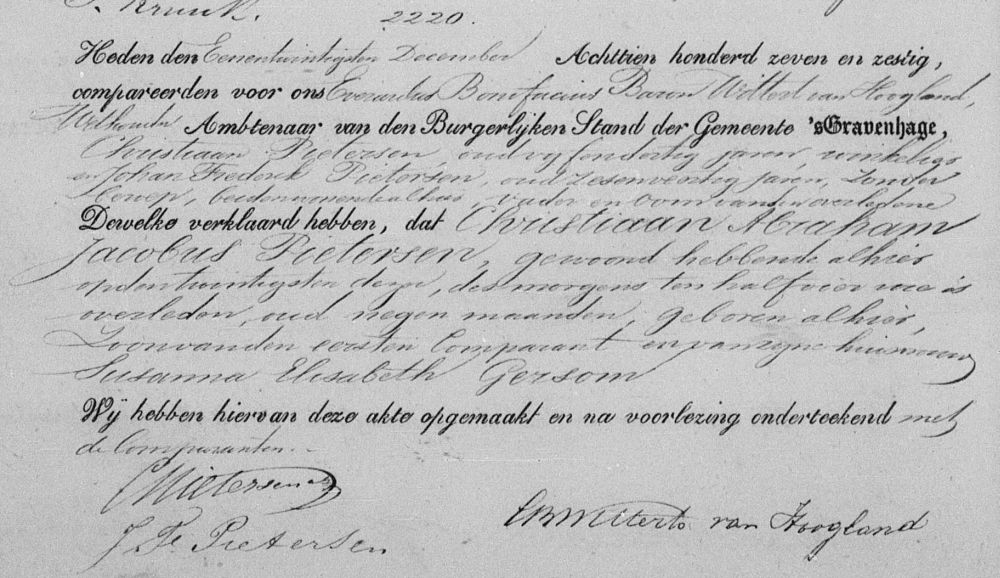 J. Kruik.
2220.
Heden den Eenentwintigsten December Achttien honderd zeven en zestig,
compareerden voor ons Everardus Bonifacius Baron Wittert van Hoogland,
Wethouder Ambtenaar van den Burgerlijken Stand der Gemeente 'sGravenhage,
Christiaan Pietersen, oud vyfendertig jaren, winkelier
en Johan Frederik Pietersen, oud zesentwintig jaren, zonder
beroep, beiden wonende alhier, vader en oom van den overledene
Dewelke verklaard hebben, dat Christiaan Abraham
Jacobus Pietersen, gewoond hebbende alhier
op den twintigsten dezer, des morgens ten half vier ure is
overleden, oud negen maanden, geboren alhier,
Zoon van den eersten Comparant en van zyne huisvrouw
Susanna Elisabeth Gersom
Wij hebben hiervan deze akte opgemaakt en na voorlezing onderteekend met
de Comparanten.
C Pietersen
J F Pietersen
EBWitterts van Hoogland.